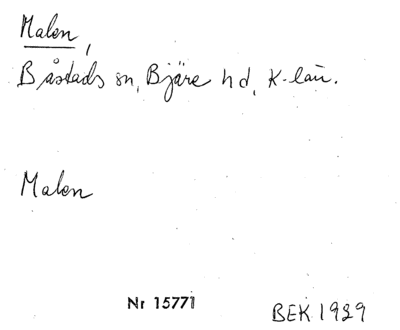 Malen,
Båstads sn, Bjäre hd, K-län.
Malen
Nr 15771
BEK 1929